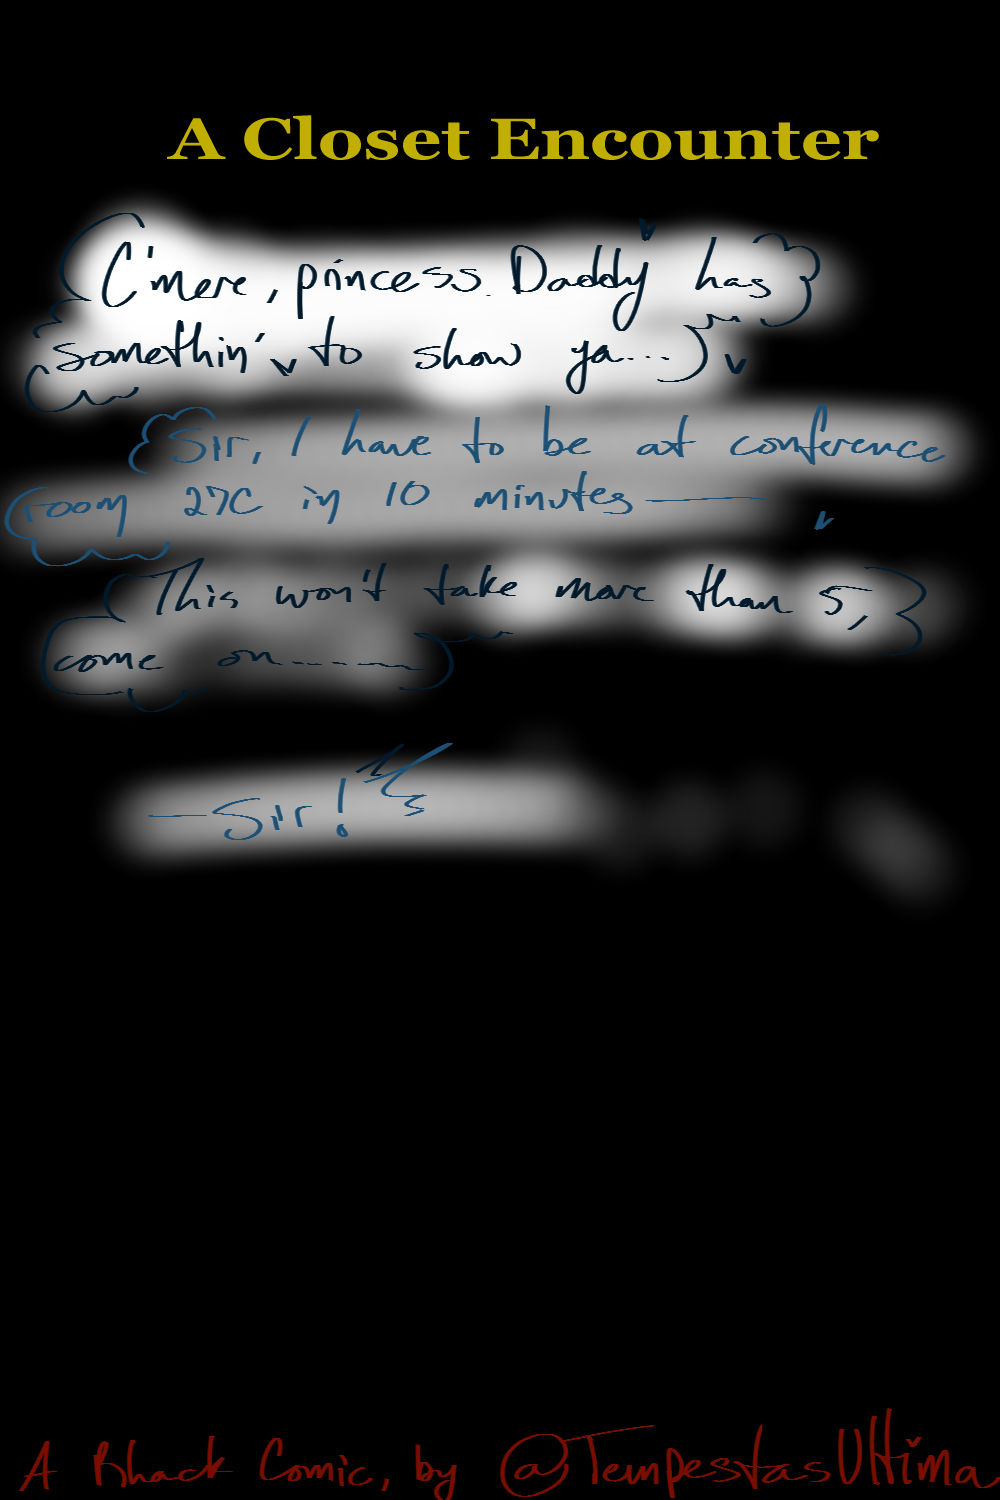 A Closet Encounter
C'mere, princess. Daddy has
somethin' to show ya...
Sir, I have to be at conference
room 27C in 10 minutes—
This won't take more than 5,
come on......
—Sir!
A Bhack Comic, by @TempestasUltima